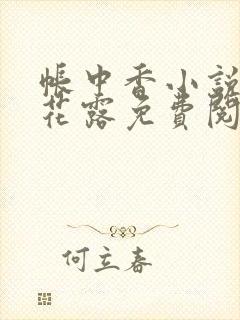 帳中香小說
花露免費閱
何立春